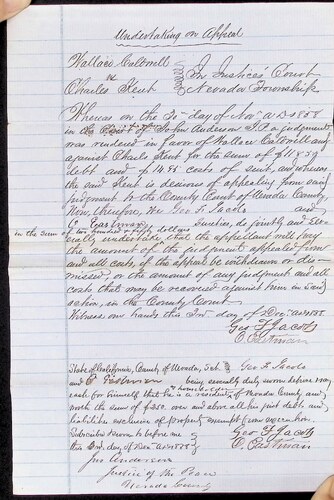 Undertaking on Appeal
Wallace Caldwell
vs
Charles Kent
In Justices' Court
Nevada Township
Whereas on the 30th day of Nov A.D. 1858
in the Court of John Anderson J.P. a judgment
was rendered in favor of Wallace Caldwell and
against Charles Kent for the sum of $118.39
debt and 14.95 costs of suit, and whereas
the said Kent is desirous of appealing from said
judgment to the County Court of Nevada County,
Now, therefore, we Geo. F. Jacobs and
C. Eastman Sureties, do jointly and sev-
in the sum of two hundred & fifty dollars
erally undertake that the appellant will pay
the amount of the judgment appealed from
and all costs, if the appeal be withdrawn or dis-
missed, or the amount of any judgment and all
costs that may be recovered against him in said
action, in the County Court
Witness our hands this 3rd day of Dec. A.D. 1858.
Geo F Jacobs
C. Eastman
State of California, County of Nevada, Sct. Geo F. Jacobs
and C. Eastman being severally duly sworn deposes & says
each for himself that he is a resident & householder of Nevada County and
worth the sum of $250. over and above all his just debts and
liabilities exclusive of property exempt from execution
Subscribed & sworn to before me
this 3rd day of Dec. A.D. 1858
Geo F Jacobs
C. Eastman
Jno Anderson
Justice of the Peace
Nevada County